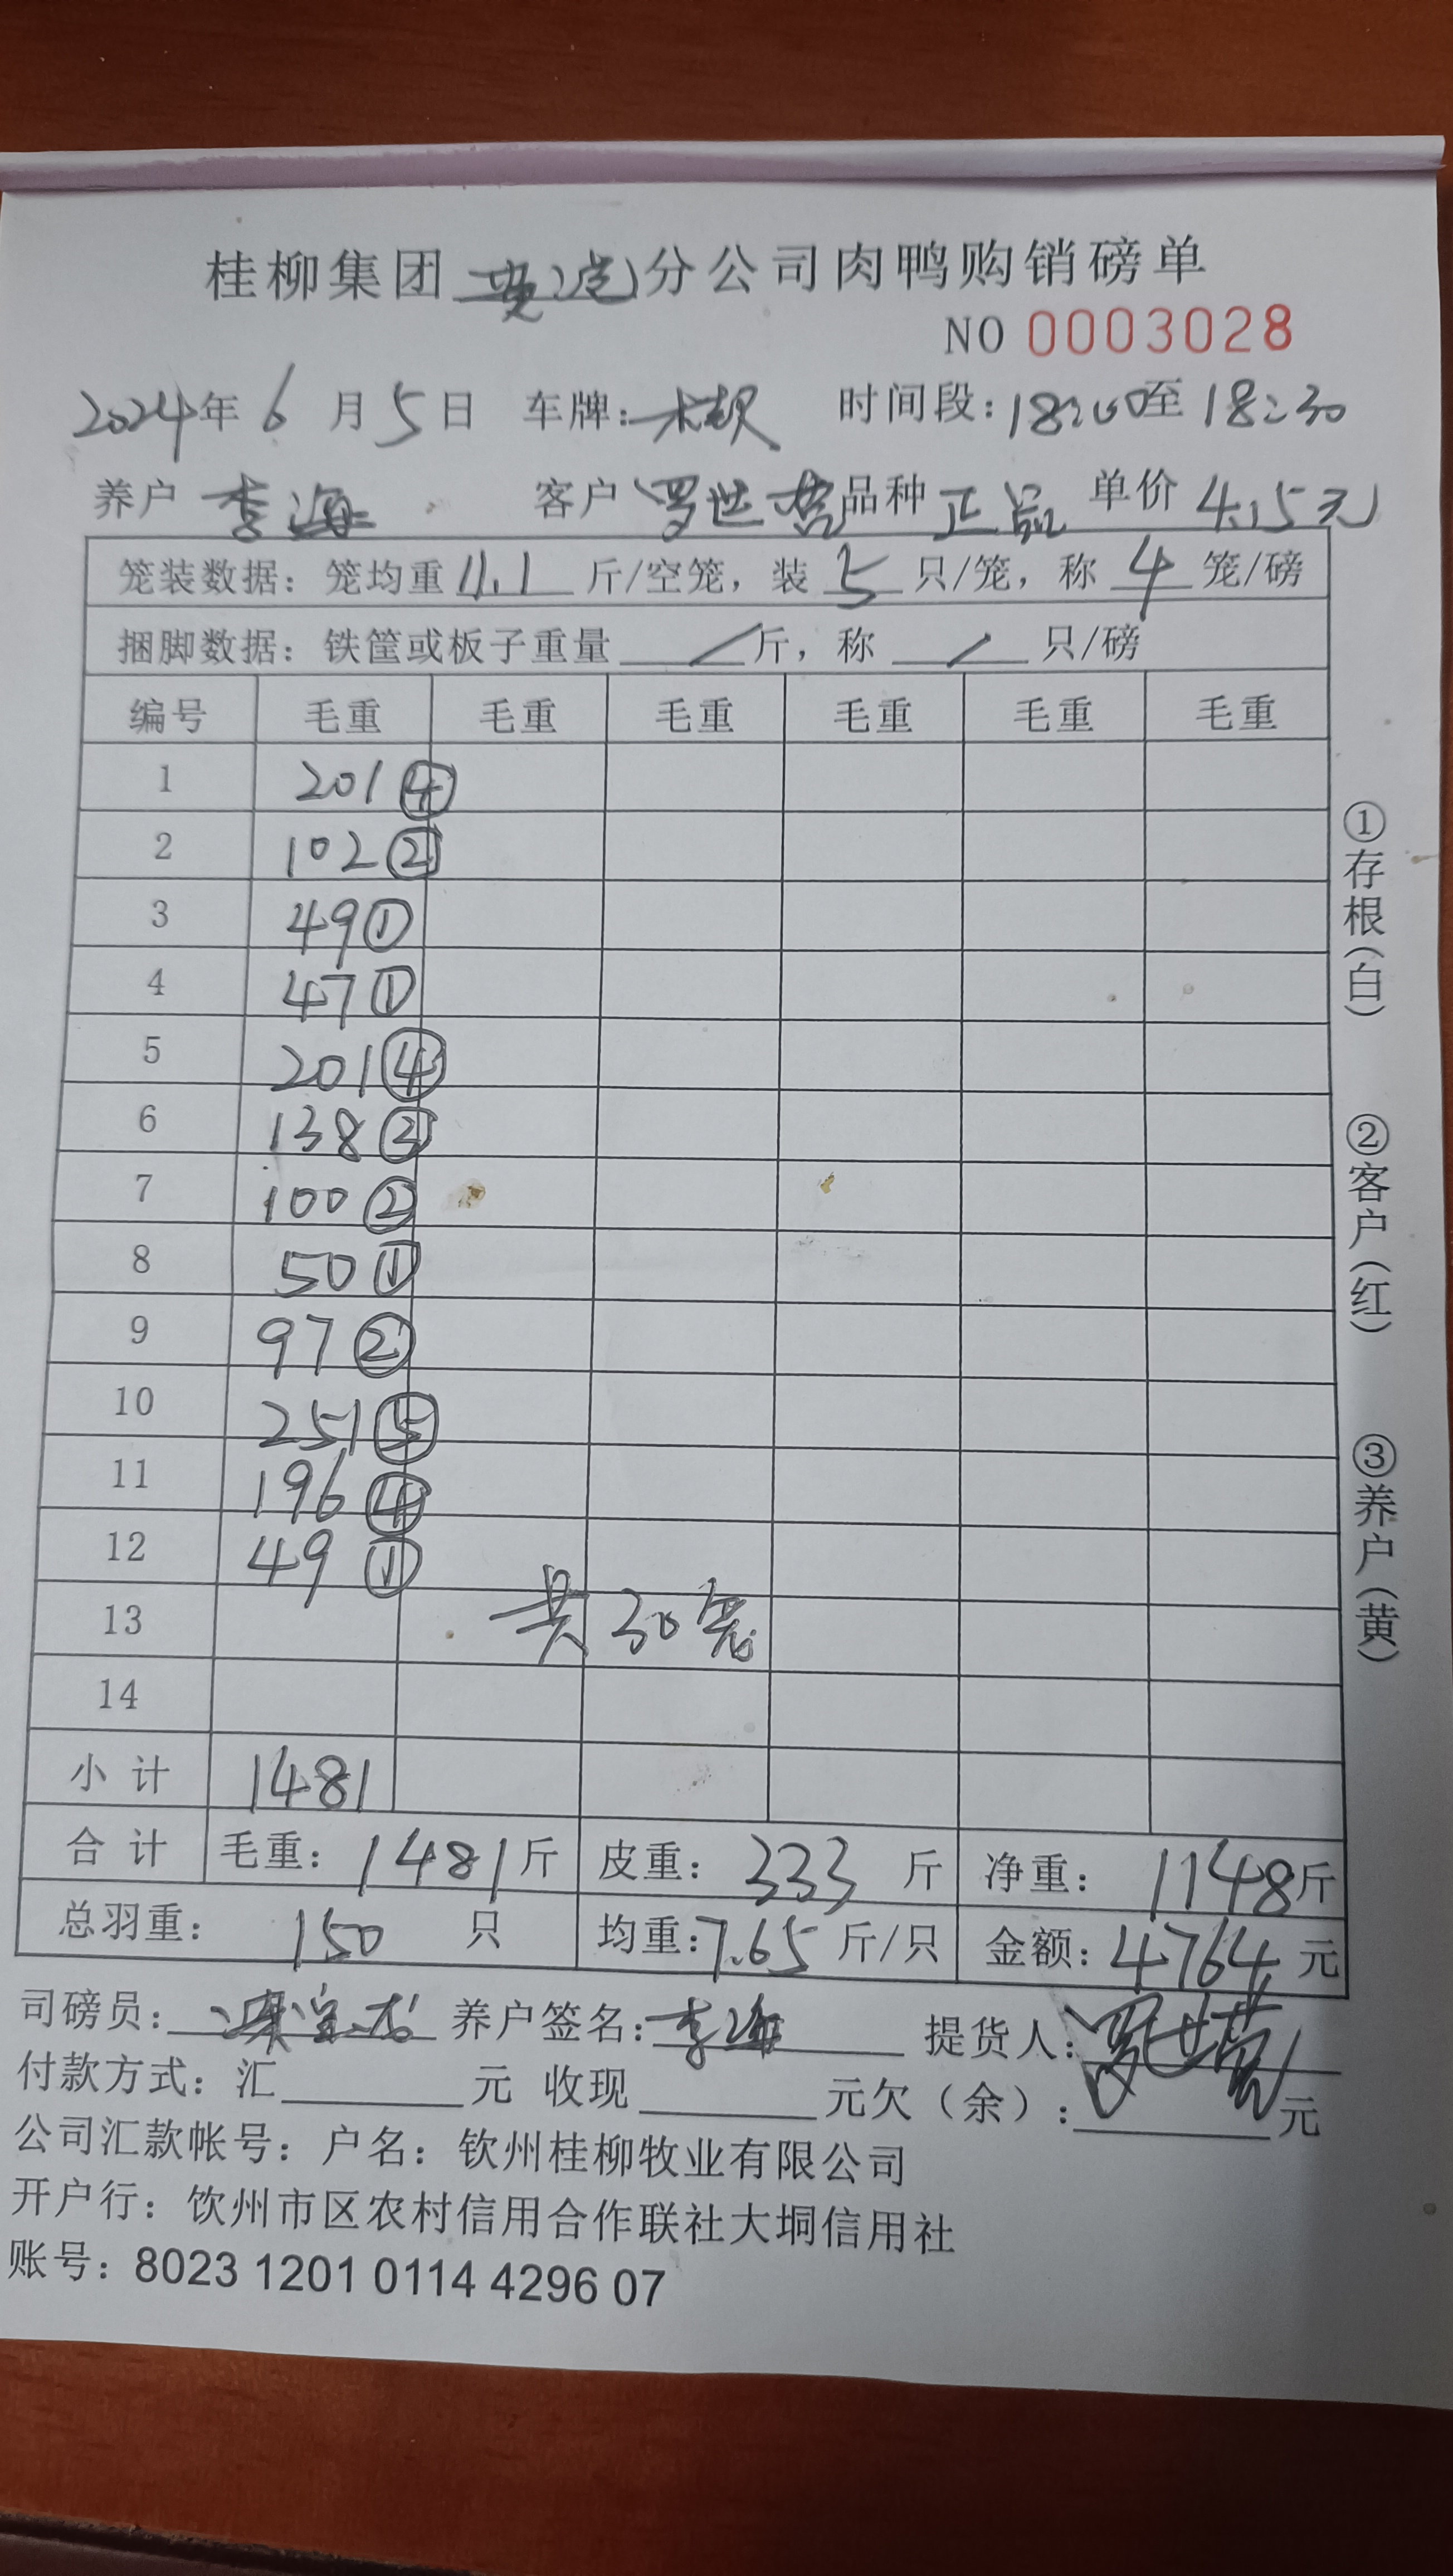 桂柳集团 分公司肉鸭购销磅单
NO 0003028
2024年 6 月 5 日 车牌: 时间段: 18:00至 18:30
养户 李海 客户 罗世 品种 正品 单价 4.15元
笼装数据: 笼均重 11.1 斤/空笼, 装 5 只/笼, 称 4 笼/磅
捆脚数据: 铁筐或板子重量 / 斤, 称 / 只/磅
编号 毛重 毛重 毛重 毛重 毛重 毛重
1 201 ④
2 102 ②
3 49 ①
4 47 ①
5 201 ④
6 138 ③
7 100 ②
8 50 ①
9 97 ②
10 251 ⑤
11 196 ④
12 49 ①
13 共30笼
14
小计 1481
合计 毛重: 1481斤 皮重: 333 斤 净重: 1148斤
总羽重: 150 只 均重: 7.65 斤/只 金额: 4764 元
司磅员: 养户签名: 李海 提货人: 罗世
付款方式: 汇 元 收现 元欠(余): 元
公司汇款帐号: 户名: 钦州桂柳牧业有限公司
开户行: 饮州市区农村信用合作联社大垌信用社
账号: 8023 1201 0114 4296 07
①存根(白)
②客户(红)
③养户(黄)